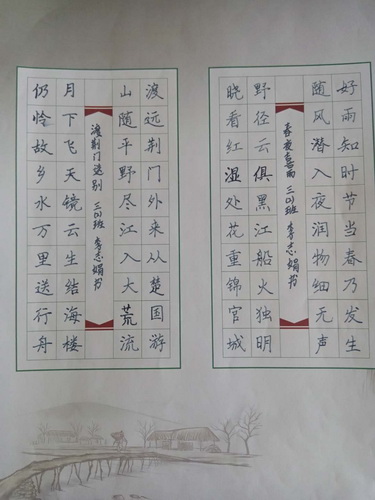 好雨知时节当春乃发生
随风潜入夜润物细无声
春夜喜雨 李志娟书
野径云俱黑江船火独明
晓看红湿处花重锦官城
渡远荆门外来从楚国游
山随平野尽江入大荒流
渡荆门送别 李志娟书
月下飞天镜云生结海楼
仍怜故乡水万里送行舟